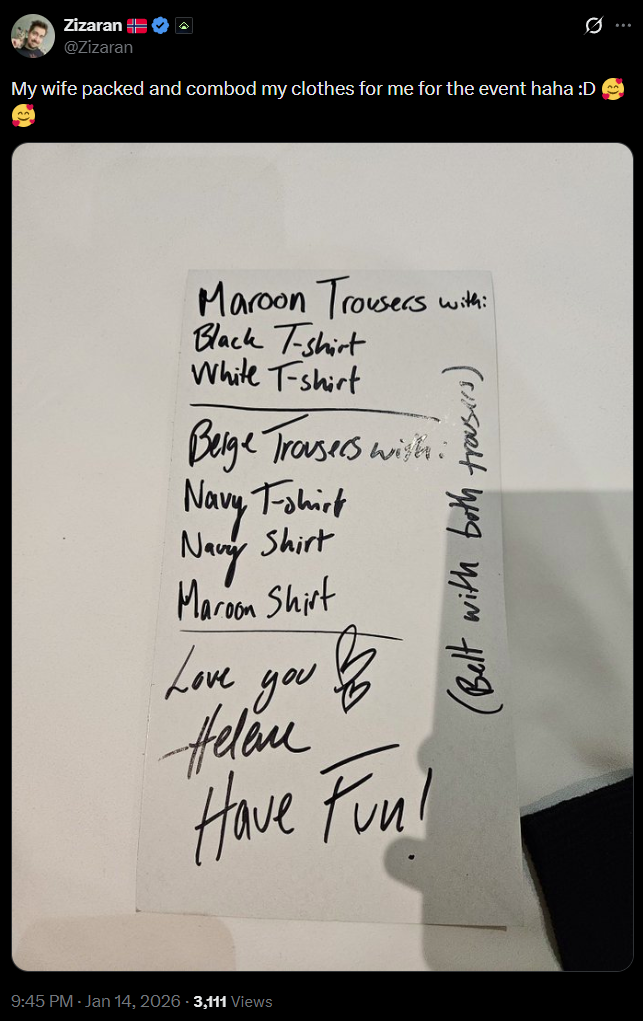 Zizaran 🇳🇴
@Zizaran
My wife packed and combod my clothes for me for the event haha :D 🥰
🥰
Maroon Trousers with:
Black T-shirt
White T-shirt
Beige Trousers with:
Navy T-shirt
Navy Shirt
Maroon Shirt
(Belt with both trousers)
Love you
Helene
Have Fun!
9:45 PM · Jan 14, 2026 · 3,111 Views